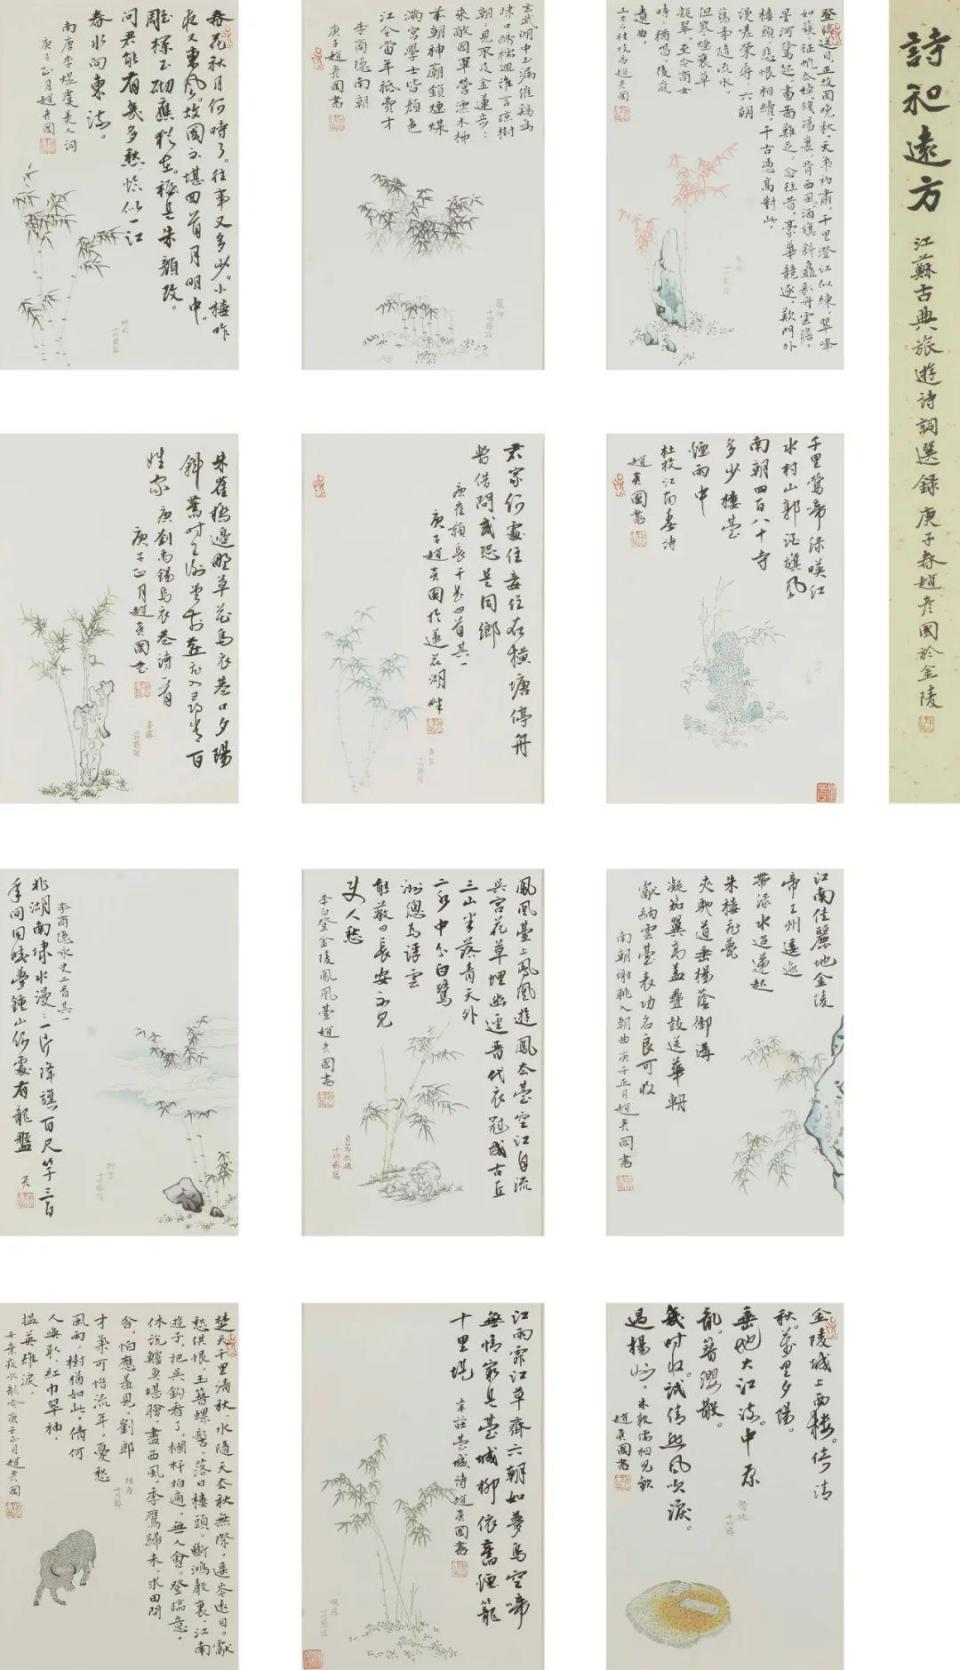 詩和遠方
江蘇古典旅遊詩詞選錄 庚子春趙彥國於金陵
登臨送目，正故國晚秋，天氣初肅，千里澄江似練，翠峰
如簇，征帆去棹殘陽裏，背西風，酒旗斜矗，彩舟雲淡，
星河鷺起，畫圖難足。念往昔，豪華競逐，歎門外
樓頭，悲恨相續。千古憑高對此，
漫嗟榮辱。六朝
舊事隨流水，
但寒煙衰草
凝翠。至今商女，
時時猶唱，後庭
遺曲。
王安石桂枝香趙彥國書
玄武湖中玉漏催雞鳴
埭口繡襦迴誰言瓊樹
朝朝見不及金蓮步步
來敵國軍營漂木柿
前朝神廟鎖煙煤
滿宮學士皆顏色
江令當年秖費才
李商隱南朝
庚子趙彥國書
春花秋月何時了。往事又多少。小樓昨
夜又東風。故國不堪回首月明中。
雕欄玉砌應猶在。秖是朱顏改。
問君能有幾多愁。恰似一江
春水向東流。
南唐李煜虞美人詞
庚子正月趙彥國
千里鶯啼綠暎江
水村山郭酒旗風
南朝四百八十寺
多少樓臺
煙雨中
杜牧江南春詩
趙彥國書
君家何處住妾住在橫塘停舟
暫借問或恐是同鄉
唐崔顥長干曲四首其一
庚子趙彥國於蓮花湖畔
朱雀橋邊野草花烏衣巷口夕陽
斜舊時王謝堂前燕飛入尋常百
姓家 唐劉禹錫烏衣巷詩一首
庚子正月趙彥國書
江南佳麗地金陵
帝王州逶迤
帶淥水迢遞起
朱樓飛甍
夾馳道垂楊蔭御溝
凝笳翼高蓋疊鼓送華輈
獻納雲臺表功名良可收
南朝謝朓入朝曲庚子正月趙彥國書
鳳凰臺上鳳凰遊鳳去臺空江自流
吳宮花草埋幽逕晉代衣冠成古丘
三山半落青天外
二水中分白鷺
洲總為浮雲
能蔽日長安不見
使人愁
李白登金陵鳳凰臺趙彥國書
李商隱詠史二首其一
北湖南埭水漫漫一片降旗百尺竿三百
年間同曉夢鍾山何處有龍盤
金陵城上西樓。倚清
秋。萬里夕陽。
垂地大江流。中原
亂。簪纓散。
幾時收。試倩悲風吹淚。
過揚州。朱敦儒相見歡
趙彥國書
江雨霏江草齊六朝如夢鳥空啼
無情最是臺城柳依舊煙籠
十里堤 韋莊臺城詩趙彥國書
楚天千里清秋，水隨天去秋無際，遙岑遠目，獻
愁供恨，玉簪螺髻。落日樓頭，斷鴻聲裏，江南
遊子，把吳鉤看了，欄杆拍遍，無人會，登臨意。
休說鱸魚堪膾，盡西風，季鷹歸未，求田問
舍，怕應羞見，劉郎
才氣可惜流年，憂愁
風雨，樹猶如此。倩何
人喚取，紅巾翠袖，
搵英雄淚。
辛棄疾水龍吟庚子正月趙彥國